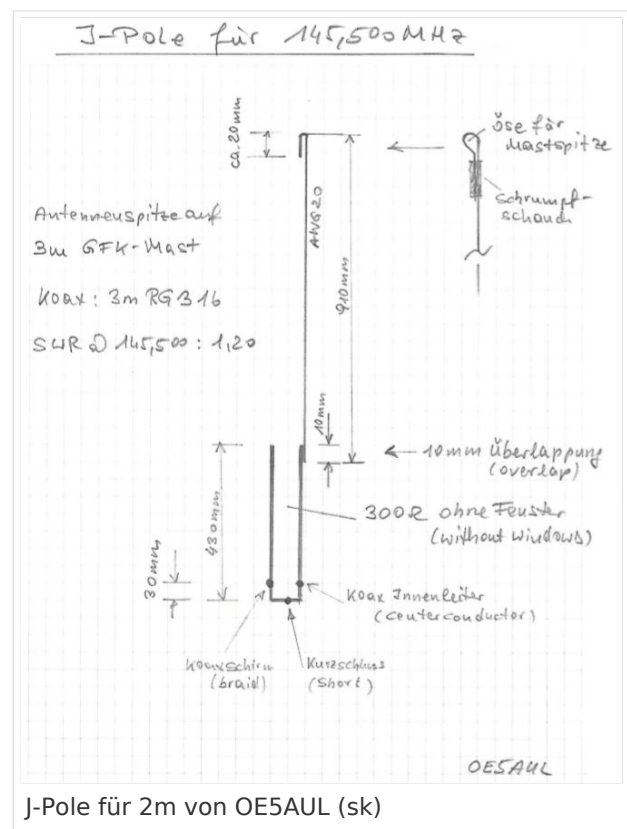 J-Pole für 145,500MHz
ca. 20mm
Öse für
Mastspitze
Schrumpf-
schlauch
Antennenspitze auf
3m GFK-Mast
Koax: 3m RG316
SWR @ 145,500: 1,20
AWG20
910mm
10mm
10mm Überlappung
(overlap)
300Ω ohne Fenster
(without windows)
430mm
30mm
Koax Innenleiter
(centerconductor)
Koaxschirm
(braid)
Kurzschluss
(Short)
OE5AUL
J-Pole für 2m von OE5AUL (sk)